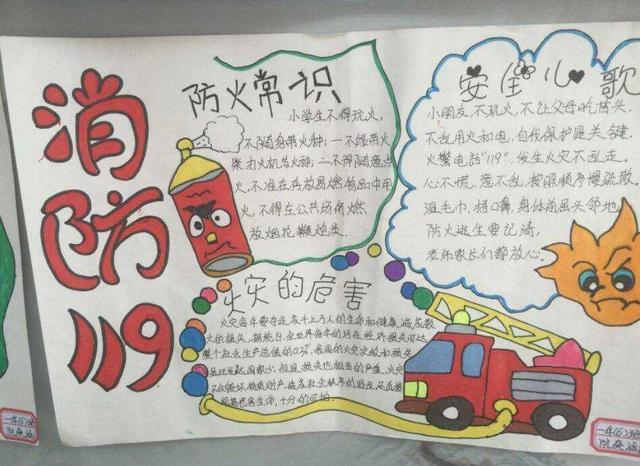 消防119
防火常识
小学生不得玩火,
不随身带火种;一不能带火
柴打火机等火种;一不得随意点
火,不准在存放易燃物品中用
火,不得在公共场所燃
放烟花、鞭炮类.
安全儿歌
小朋友,不玩火,不让父母吃苦头.
不乱用火和电,自我保护是关键.
火警电话"119",发生火灾不乱走.
心不慌,意不乱,按照顺序慢疏散.
湿毛巾,捂口鼻,身体前屈头邻地.
防火逃生要记清,
老师家长们都放心.
火灾的危害
火灾每年要夺走成千上万人的生命和健康,造成数
大的损失,据统计,全世界每年的火灾经济损失可达
整个社会生产总值的0.2%,我国的火灾次数和损失
虽比发达国家少,但且损失也相当的严重,火灾
十分的可怕
一年(6)班
一年(6)班